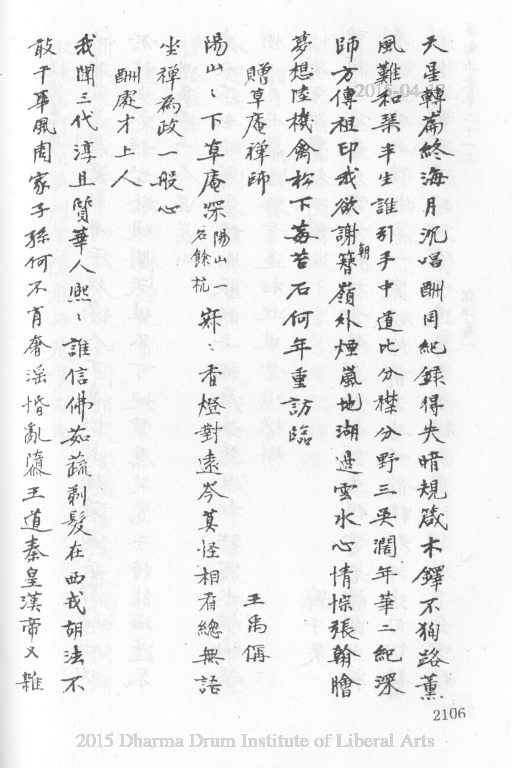 天星轉篇終海月沉唱酬同紀錄得失暗規箴木鐸不狥路薰
風難和琴半生誰引手中道比分襟分野三吳濶年華二紀深
師方傳祖印我欲謝朝簪嶺外煙嵐地湖邊雲水心情悰張翰膾
夢想陸機禽松下莓苔石何年重訪臨
贈草庵禪師
王禹偁
陽山〻下草庵深陽山一名餘杭寂〻香燈對遠岑莫怪相看總無語
坐禪為政一般心
酬處才上人
我聞三代淳且質華人熙〻誰信佛茹蔬剃髮在西戎胡法不
敢干華風周家子孫何不肖奢淫惛亂隳王道秦皇漢帝又雜
2106
2015-04-17
2015 Dharma Drum Institute of Liberal Arts